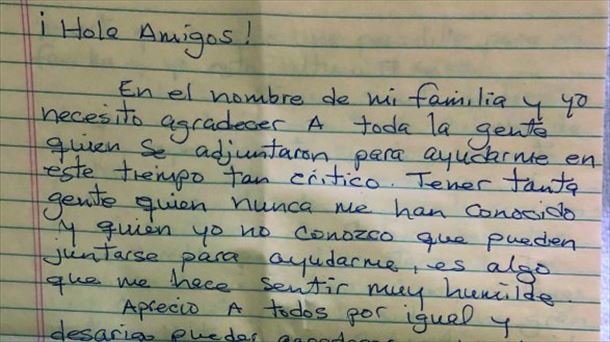 ¡Hola Amigos!
En el nombre de mi familia y yo
necesito agradecer A toda la gente
quien se adjuntaron para ayudarme en
este tiempo tan critico. Tener tanta
gente quien nunca me han conocido
y quien yo no conozco que pueden
juntarse para ayudarme, es algo
que me hace sentir muy humilde.
Aprecio A todos por igual y